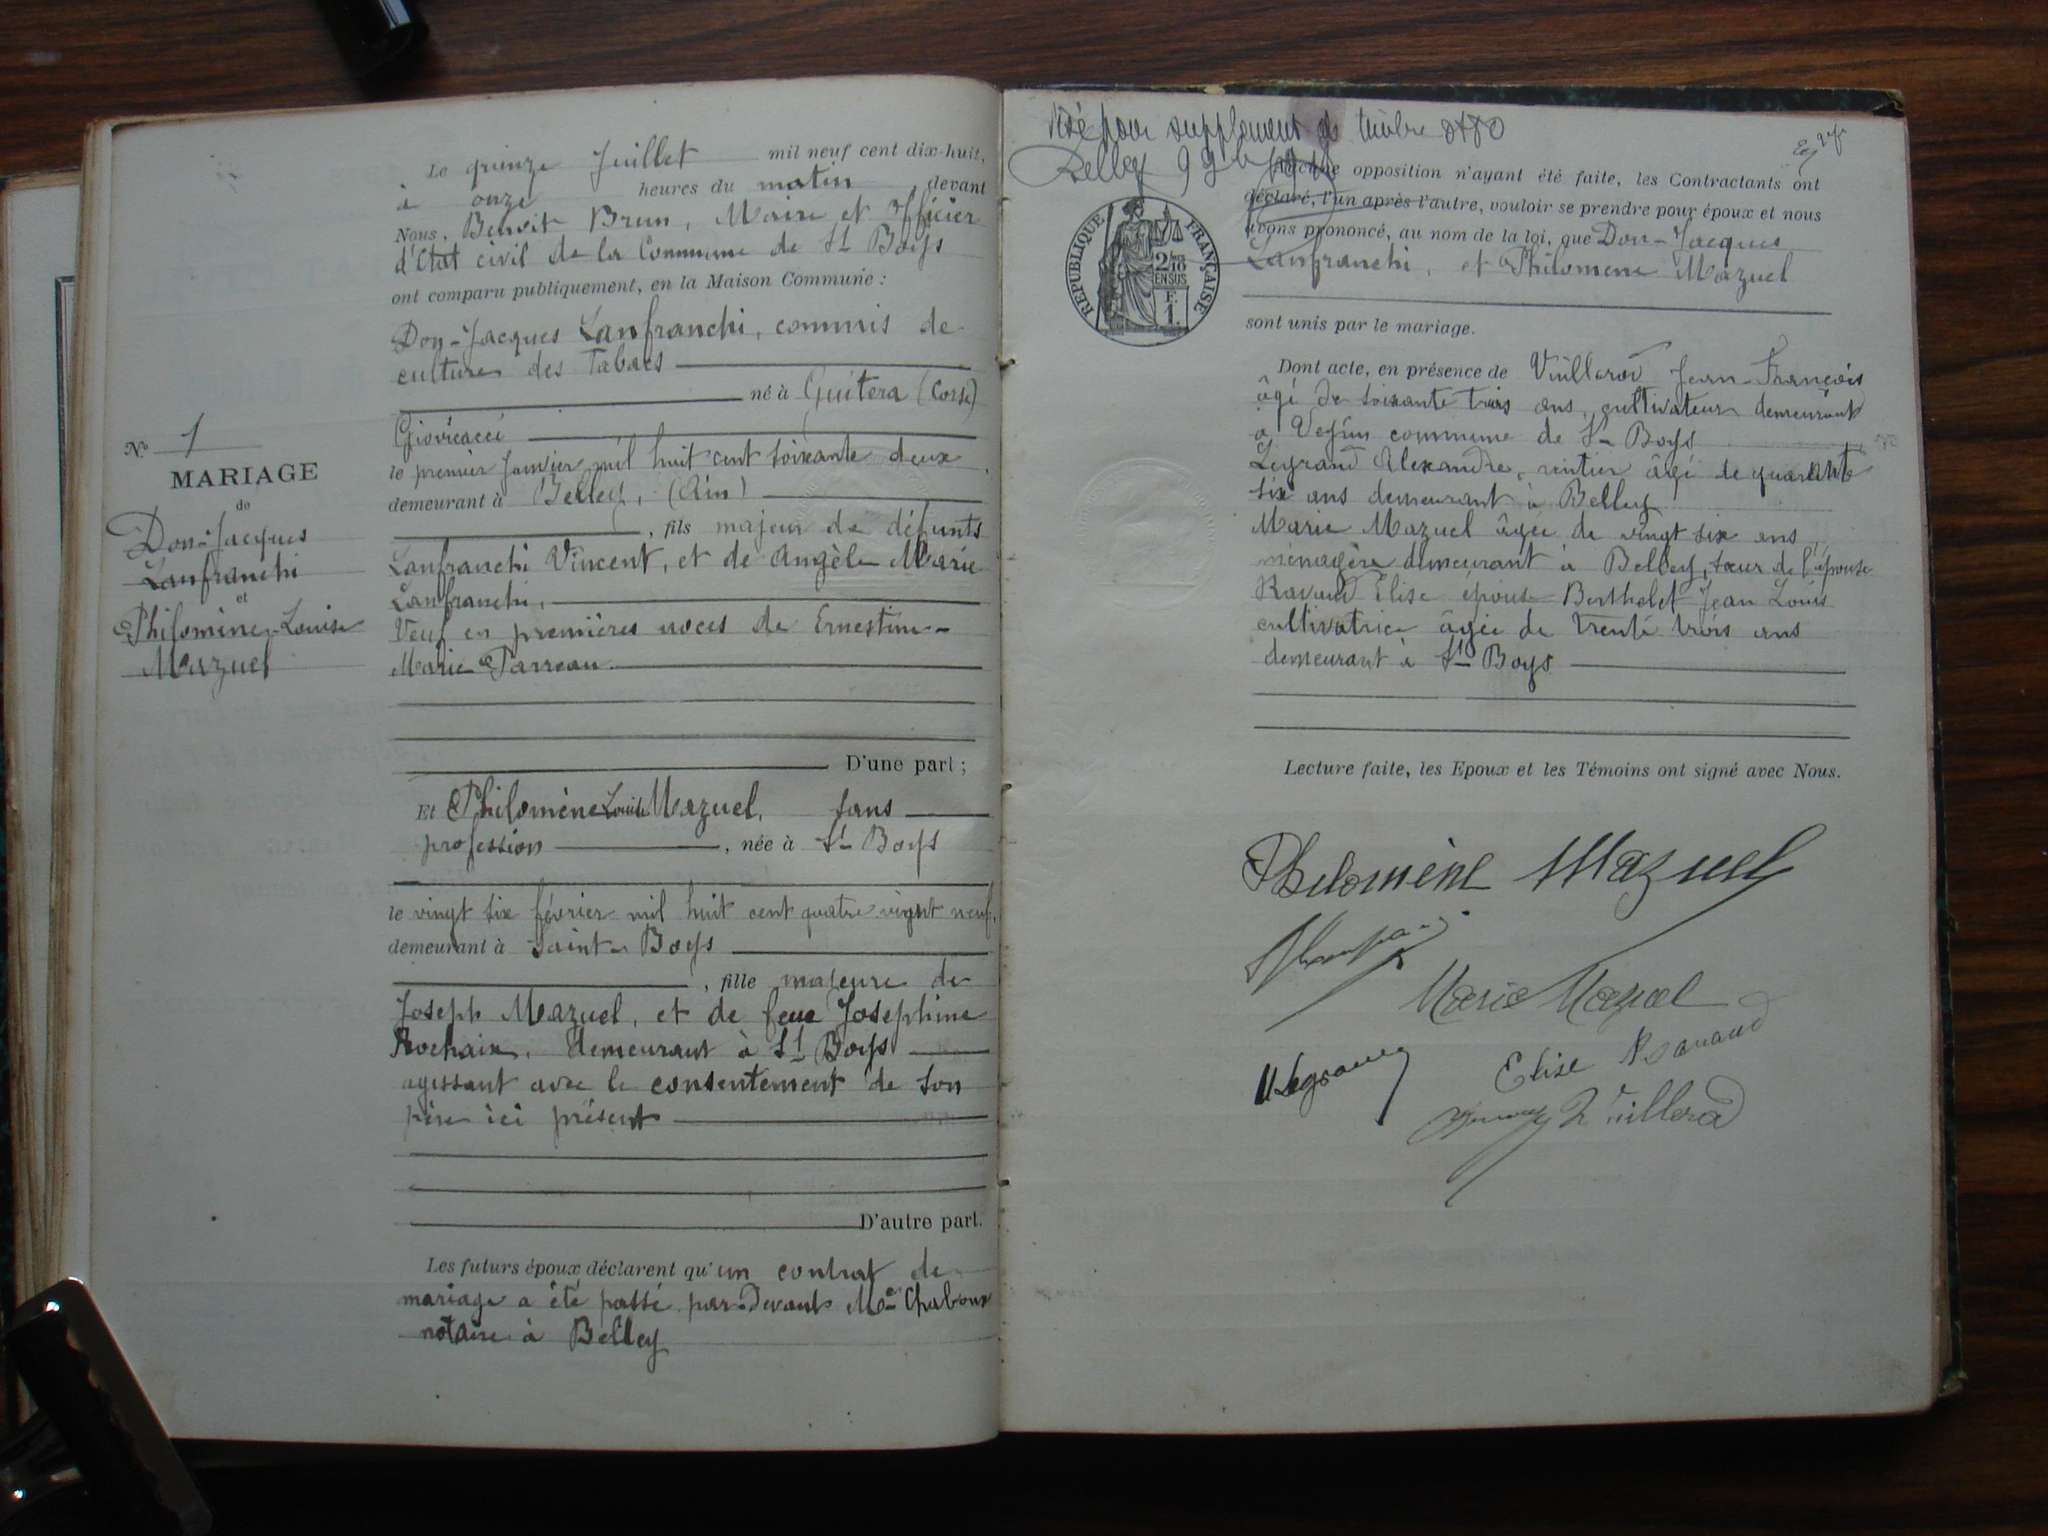 Nº 1
MARIAGE
de
Don-Jacques
Lanfranchi
et
Philomène-Louise
Mazuel
Le quinze Juillet mil neuf cent dix-huit,
à onze heures du matin devant
Nous, Benoit Brun, Maire et Officier
d'Etat civil de la Commune de St Boys
ont comparu publiquement, en la Maison Commune :
Don-Jacques Lanfranchi, commis de
culture des Tabacs
né à Guitera (Corse)
le premier Janvier mil huit cent soixante deux,
demeurant à Belley, (Ain)
, fils majeur de défunts
Lanfranchi Vincent, et de Angèle Marie
Lanfranchi,
Veuf en premières noces de Ernestine-
Marie
D'une part ;
Et Philomène Louise Mazuel, sans
profession, née à St Boys
le vingt six février mil huit cent quatre vingt neuf,
demeurant à Saint-Boys
, fille majeure de
Joseph Mazuel, et de feue Josephine
Rochaix, demeurant à St Boys
agissant avec le consentement de son
père ici présent
D'autre part.
Les futurs époux déclarent qu'un contrat de
mariage a été passé par-devant Me Chaboux
notaire à Belley
Visé pour supplément de timbre
Belley
RÉPUBLIQUE FRANÇAISE
2/10
EN SUS
F.
1.
Aucune opposition n'ayant été faite, les Contractants ont
déclaré, l'un après l'autre, vouloir se prendre pour époux et nous
avons prononcé, au nom de la loi, que Don-Jacques
Lanfranchi, et Philomène Mazuel
sont unis par le mariage.
Dont acte, en présence de Vuillerod Jean-François
âgé de soixante trois ans, cultivateur demeurant
à commune de St Boys
Legrand Alexandre, rentier âgé de quarante
six ans demeurant à Belley
Marie Mazuel âgée de vingt six ans,
ménagère demeurant à Belley, sœur de l'épouse
Ravaud Elise épouse Berthelet Jean Louis
cultivatrice âgée de trente trois ans
demeurant à St Boys
Lecture faite, les Epoux et les Témoins ont signé avec Nous.
Philomène Mazuel
Marie Mazuel
Legrand
Elise Ravaud
Vuillerod